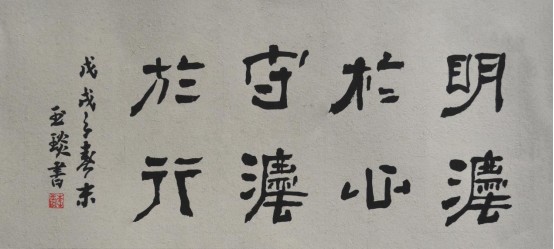 明灋
於心
守灋
於行
戊戌之春末
亚琰書